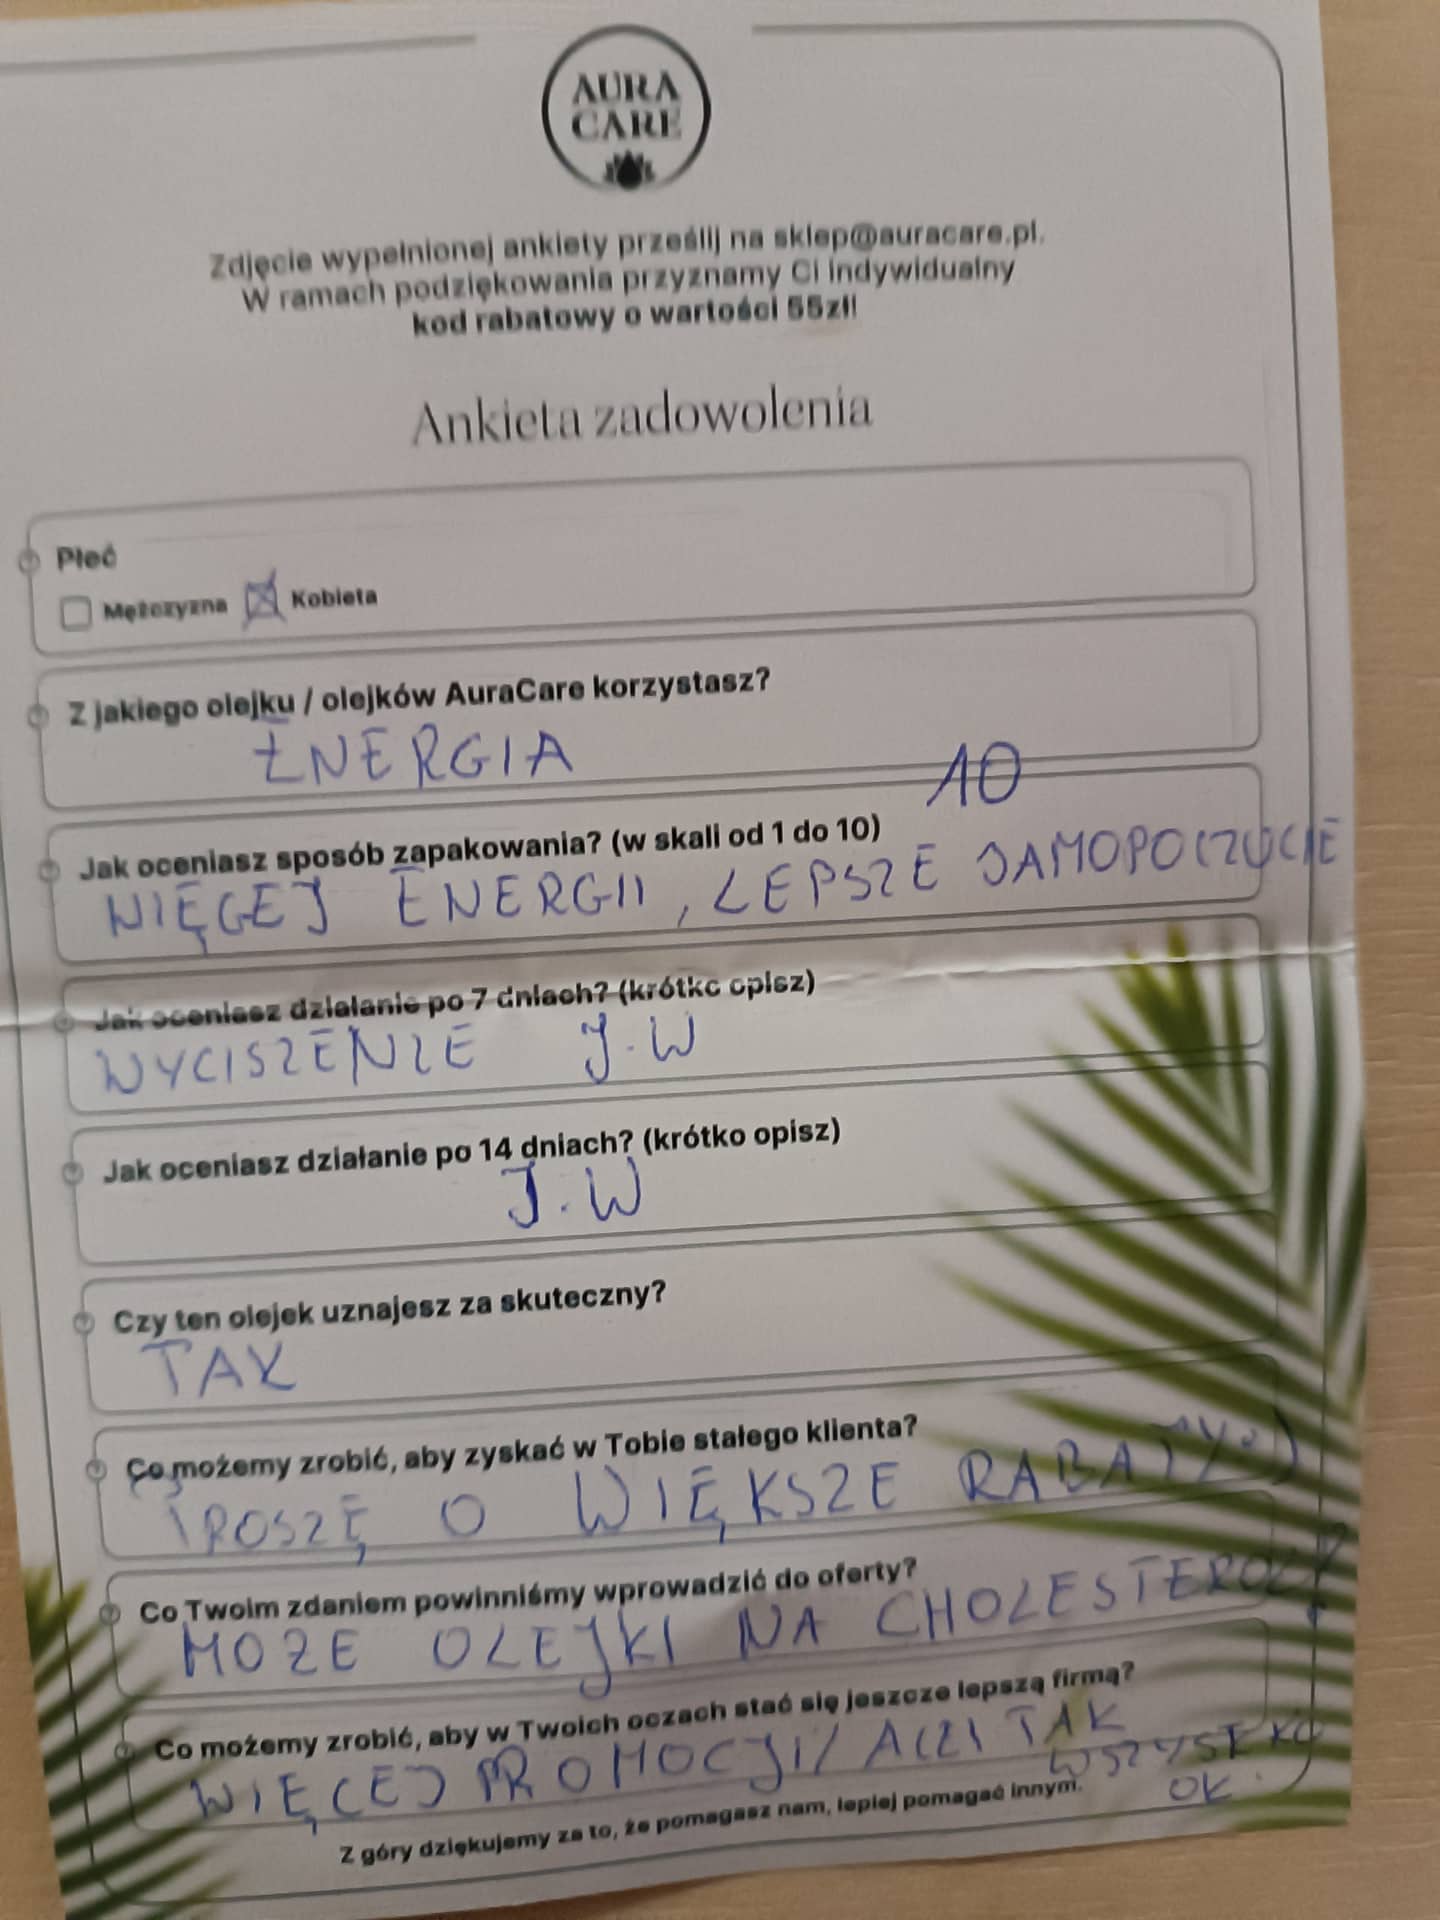 AURA
CARE
Zdjęcie wypełnionej ankiety prześlij na sklep@auracare.pl.
W ramach podziękowania przyznamy Ci indywidualny
kod rabatowy o wartości 55zł!
Ankieta zadowolenia
Płeć
Mężczyzna Kobieta
Z jakiego olejku / olejków AuraCare korzystasz?
ENERGIA
Jak oceniasz sposób zapakowania? (w skali od 1 do 10) 10
WIĘCEJ ENERGII, LEPSZE SAMOPOCZUCIE
Jak oceniasz działanie po 7 dniach? (krótko opisz)
WYCISZENIE J.W
Jak oceniasz działanie po 14 dniach? (krótko opisz)
J.W
Czy ten olejek uznajesz za skuteczny?
TAK
Co możemy zrobić, aby zyskać w Tobie stałego klienta?
PROSZĘ O WIĘKSZE RABATY :)
Co Twoim zdaniem powinniśmy wprowadzić do oferty?
MOZE OLEJKI NA CHOLESTEROL?
Co możemy zrobić, aby w Twoich oczach stać się jeszcze lepszą firmą?
WIĘCEJ PROMOCJI/ A(CZ)I TAK
WSZYSTKO
OK.
Z góry dziękujemy za to, że pomagasz nam, lepiej pomagać innym.